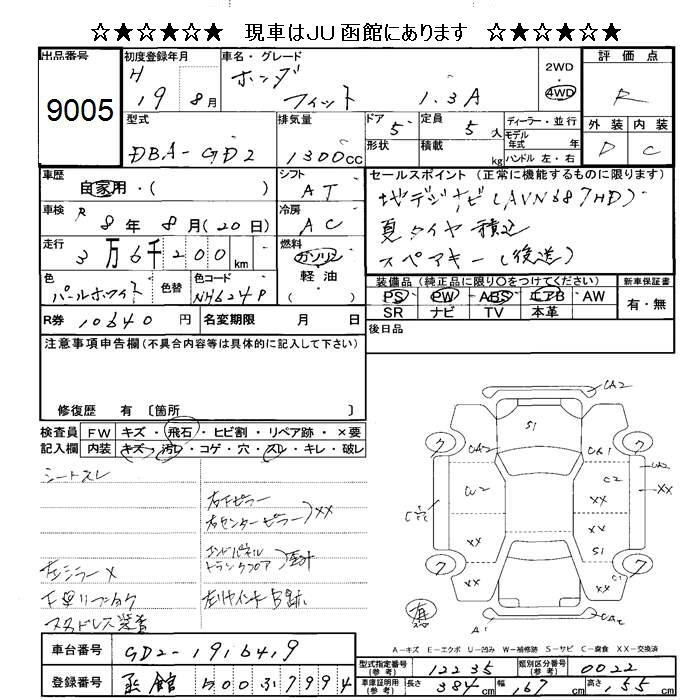 ☆★☆★☆★ 現車はJU函館にあります ☆★☆★☆★
出品番号
9005
初度登録年月
H
19 8月
車名・グレード
ホンダ
フィット 1.3A
2WD
4WD
評価点
R
外装 内装
D C
型式
DBA-GD2
排気量
1300cc
ドア 5
形状
定員 5人
積載 kg
ディーラー・並行
モデル年式 年式
ハンドル 左・右
車歴
自家用・( )
シフト
AT
車検 R 8年8月(20日)
冷房
AC
走行
3万6千200km
燃料
ガソリン
軽油
( )
色
パールホワイト
色替
色コード
NH624P
R券 10640円
名変期限 月 日
セールスポイント (正常に機能するものに限ります)
地デジナビ(AVN687HD)
夏タイヤ積込
スペアキー(後送)
装備品(純正品に限り○をつけてください)
新車保証書
PS PW ABS エアB AW
SR ナビ TV 本革
有・無
後日品
注意事項申告欄(不具合内容等は具体的に記入して下さい)
修復歴 有〔箇所 〕
検査員記入欄
FW キズ・飛石・ヒビ割・リペア跡・×要
内装 キズ・汚レ・コゲ・穴・スレ・キレ・破レ
シートスレ
右Fピラー
右センターピラー XX
エンドパネル
トランクフロア
左ミラーX
下廻リフジョウケ
スタッドレス装着
S1
UA2
UA1
C2
W2
XX
XX
XX
XX
S1
C1
XX
ク
ク
ク
ク
有
A-キズ E-エクボ U-凹み W-補修跡 S-サビ C-腐食 XX-交換済
車台番号
GD2-1916419
登録番号
函館 500 ふ 7994
型式指定番号(参考)
12235
類別区分番号(参考)
0022
車庫証明用(参考)
長さ 384cm 幅 167cm 高さ 155cm